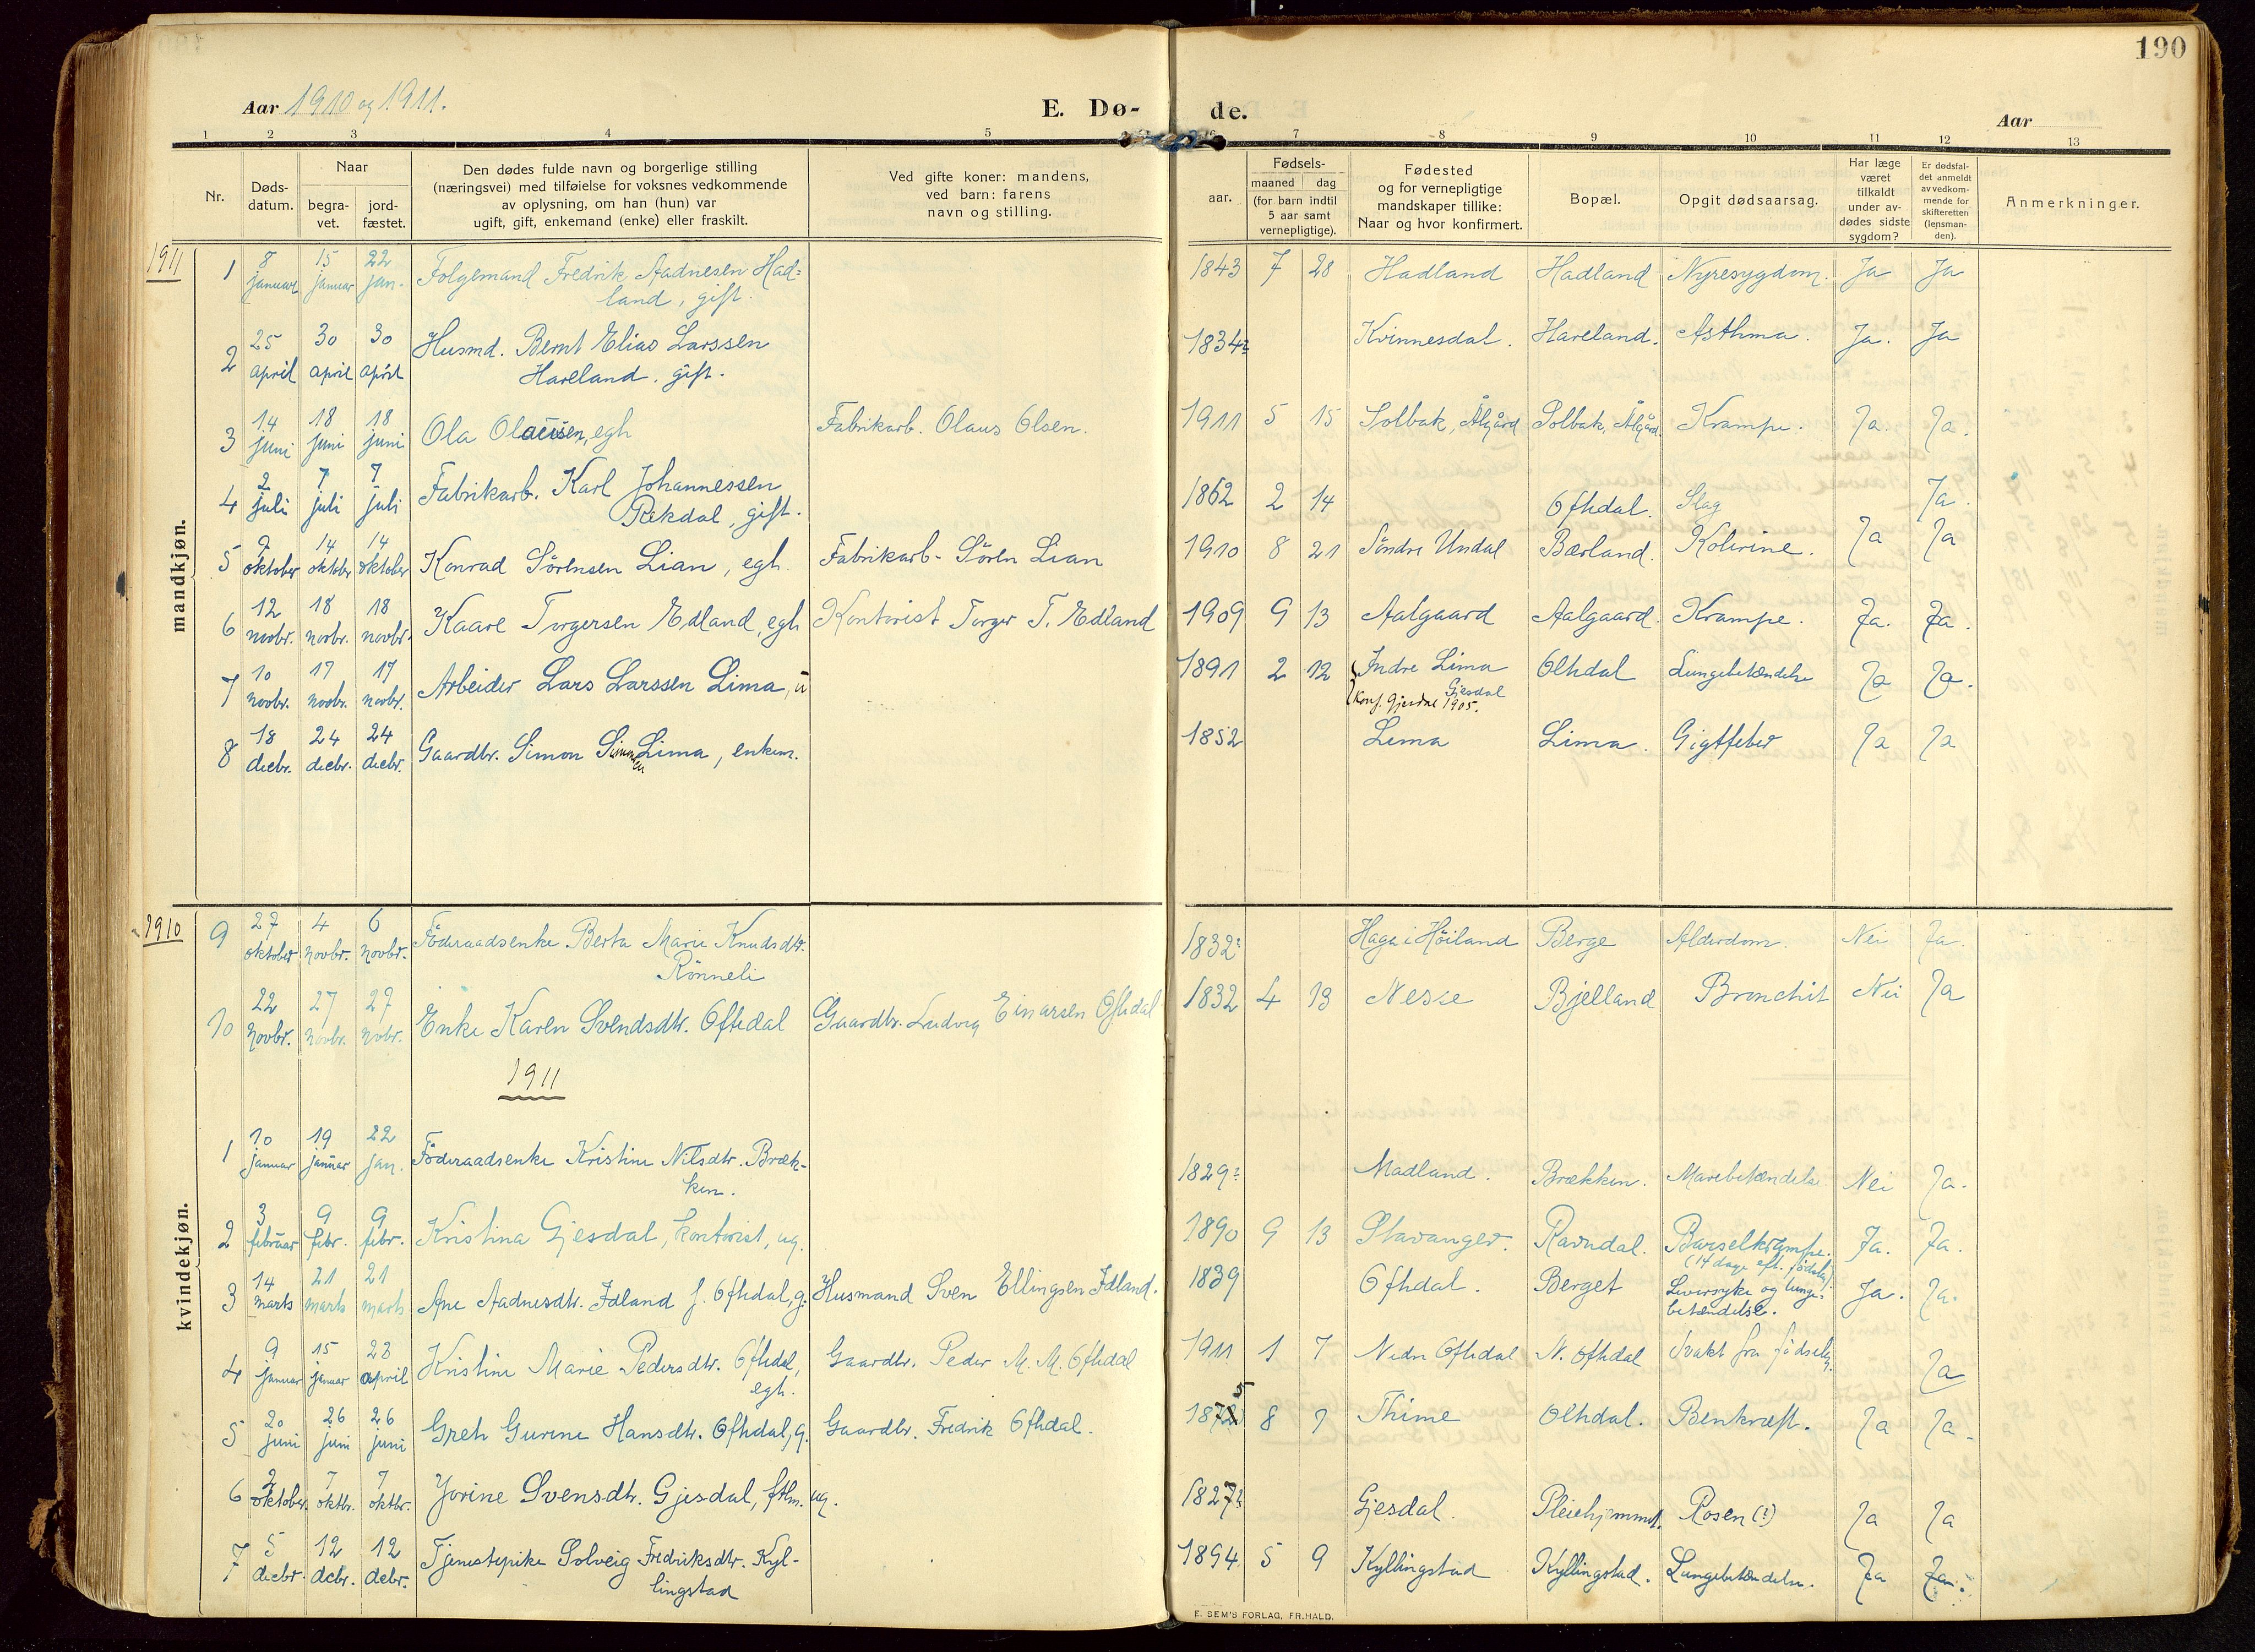 190
Aar 1910 og 1911.
E. Dø-
de.
Aar
1 2 3 4 5 6 7 8 9 10 11 12 13
Nr.
Døds-
datum.
Naar
begra-
vet.
jord-
fæstet.
Den dødes fulde navn og borgerlige stilling
(næringsvei) med tilføielse for voksnes vedkommende
av oplysning, om han (hun) var
ugift, gift, enkemand (enke) eller fraskilt.
Ved gifte koner: mandens,
ved barn: farens
navn og stilling.
Fødsels-
aar.
maaned dag
(for barn indtil
5 aar samt
vernepligtige).
Fødested
og for vernepligtige
mandskaper tillike:
Naar og hvor konfirmert.
Bopæl.
Opgit dødsaarsag.
Har læge
været
tilkaldt
under av-
dødes sidste
sygdom?
Er dødsfal-
det anmeldt
av vedkom-
mende for
skifteretten
(lensman-
den).
Anmerkninger.
mandkjøn.
1911
1 8 januar 15 januar 22 jan. Folgemand Fredrik Aadnesen Had-
land, gift. 1843 7 28 Hadland Hadland Nyresygdom. Ja Ja
2 25 april 30 april 30 april Husmd. Bernt Elias Larssen
Hareland. gift. 1834? Kvinnesdal. Hareland. Asthma. Ja. Ja
3 14 juni 18 juni 18 juni Ola Olaussen, egh Fabrikarb. Olaus Olsen. 1911 5 15 Solbak, Ålgård Solbak, Ålgård. Krampe. Ja. Ja.
4 2 juli 7 juli 7 juli Fabrikarb. Karl Johannessen
Rekdal, gift. 1862 2 14 Oftedal. Slag Ja.
5 9 oktober 14 oktober 14 oktober Konrad Sörensen Lian, egh. Fabrikarb- Sören Lian 1910 8 21 Söndre Undal Bærland. Kolerine. Ja Ja
6 12 novbr. 18 novbr. 18 novbr. Kaare Torgersen Edland, egh Kontorist Torger T. Edland 1909 9 13 Aalgaard Aalgaard. Krampe. Ja. Ja.
7 10 novbr. 17 novbr. 17 novbr. Arbeider Lars Larssen Lima, u 1891 2 12 Indre Lima
Gjesdal
Konf. Gjesdal 1905. Oltedal Lungebetændelse Ja Ja.
8 18 decbr. 24 decbr. 24 decbr. Gaardbr. Simon Simonsen Lima, enkem. 1852 Lima Lima. Gigtfeber Ja Ja
kvindekjøn.
1910
9 27 oktober 4 novbr. 6 novbr. Föderaadsenke Berta Marie Knudsdtr.
Rönneli 1832? Haga i Höiland Berge Alderdom. Nei Ja.
10 22 novbr. 27 novbr. 27 novbr. Enke Karen Svendsdtr. Oftedal Gaardbr. Ludvig Einarsen Oftedal 1832 4 13 Nesse Bjelland Bronchit Nei Ja
1911
1 10 januar 19 januar 22 jan. Föderaadsenke Kristine Nilsdtr. Bræk-
ken. 1829? Madland. Brækken. Mavebetændelse. Nei Ja.
2 3 februar 9 febr. 9 febr. Kristina Gjesdal, kontorist, ug. 1890 9 13 Stavanger. Ravndal. Barselkrampe.
(14 dage eft. födselen) Ja. Ja.
3 14 marts 21 marts 21 marts Ane Aadnesdtr. Idland f. Oftedal, g. Husmand Sven Ellingsen Idland. 1839 Oftedal. Berget Leversyke og lunge-
betændelse. Ja. Ja.
4 9 januar 15 januar 23 april Kristine Marie Pedersdtr. Oftedal,
egh. Gaardbr. Peder M. M. Oftedal 1911 1 7 Nedre Oftedal N. Oftedal Svakt fra födselen. Ja
5 20 juni 26 juni 26 juni Grete Gurine Hansdtr. Oftedal, g. Gaardbr. Fredrik Oftedal. 1875 8 7 Thime Oltedal. Benkræft. Ja Ja.
6 2 oktober. 7 oktbr. 7 oktbr. Jorine Svensdtr. Gjesdal, fthm. ug. 1827? Gjesdal. Pleiehjemmet. Rosen (?) Ja Ja
7 5 decbr. 12 decbr. 12 decbr. Tjenestepike Solveig Fredriksdtr. Kyl-
lingstad 1894. 5 9 Kyllingstad Kyllingstad. Lungebetændelse. Ja Ja.
E. SEM'S FORLAG, FR.HALD.